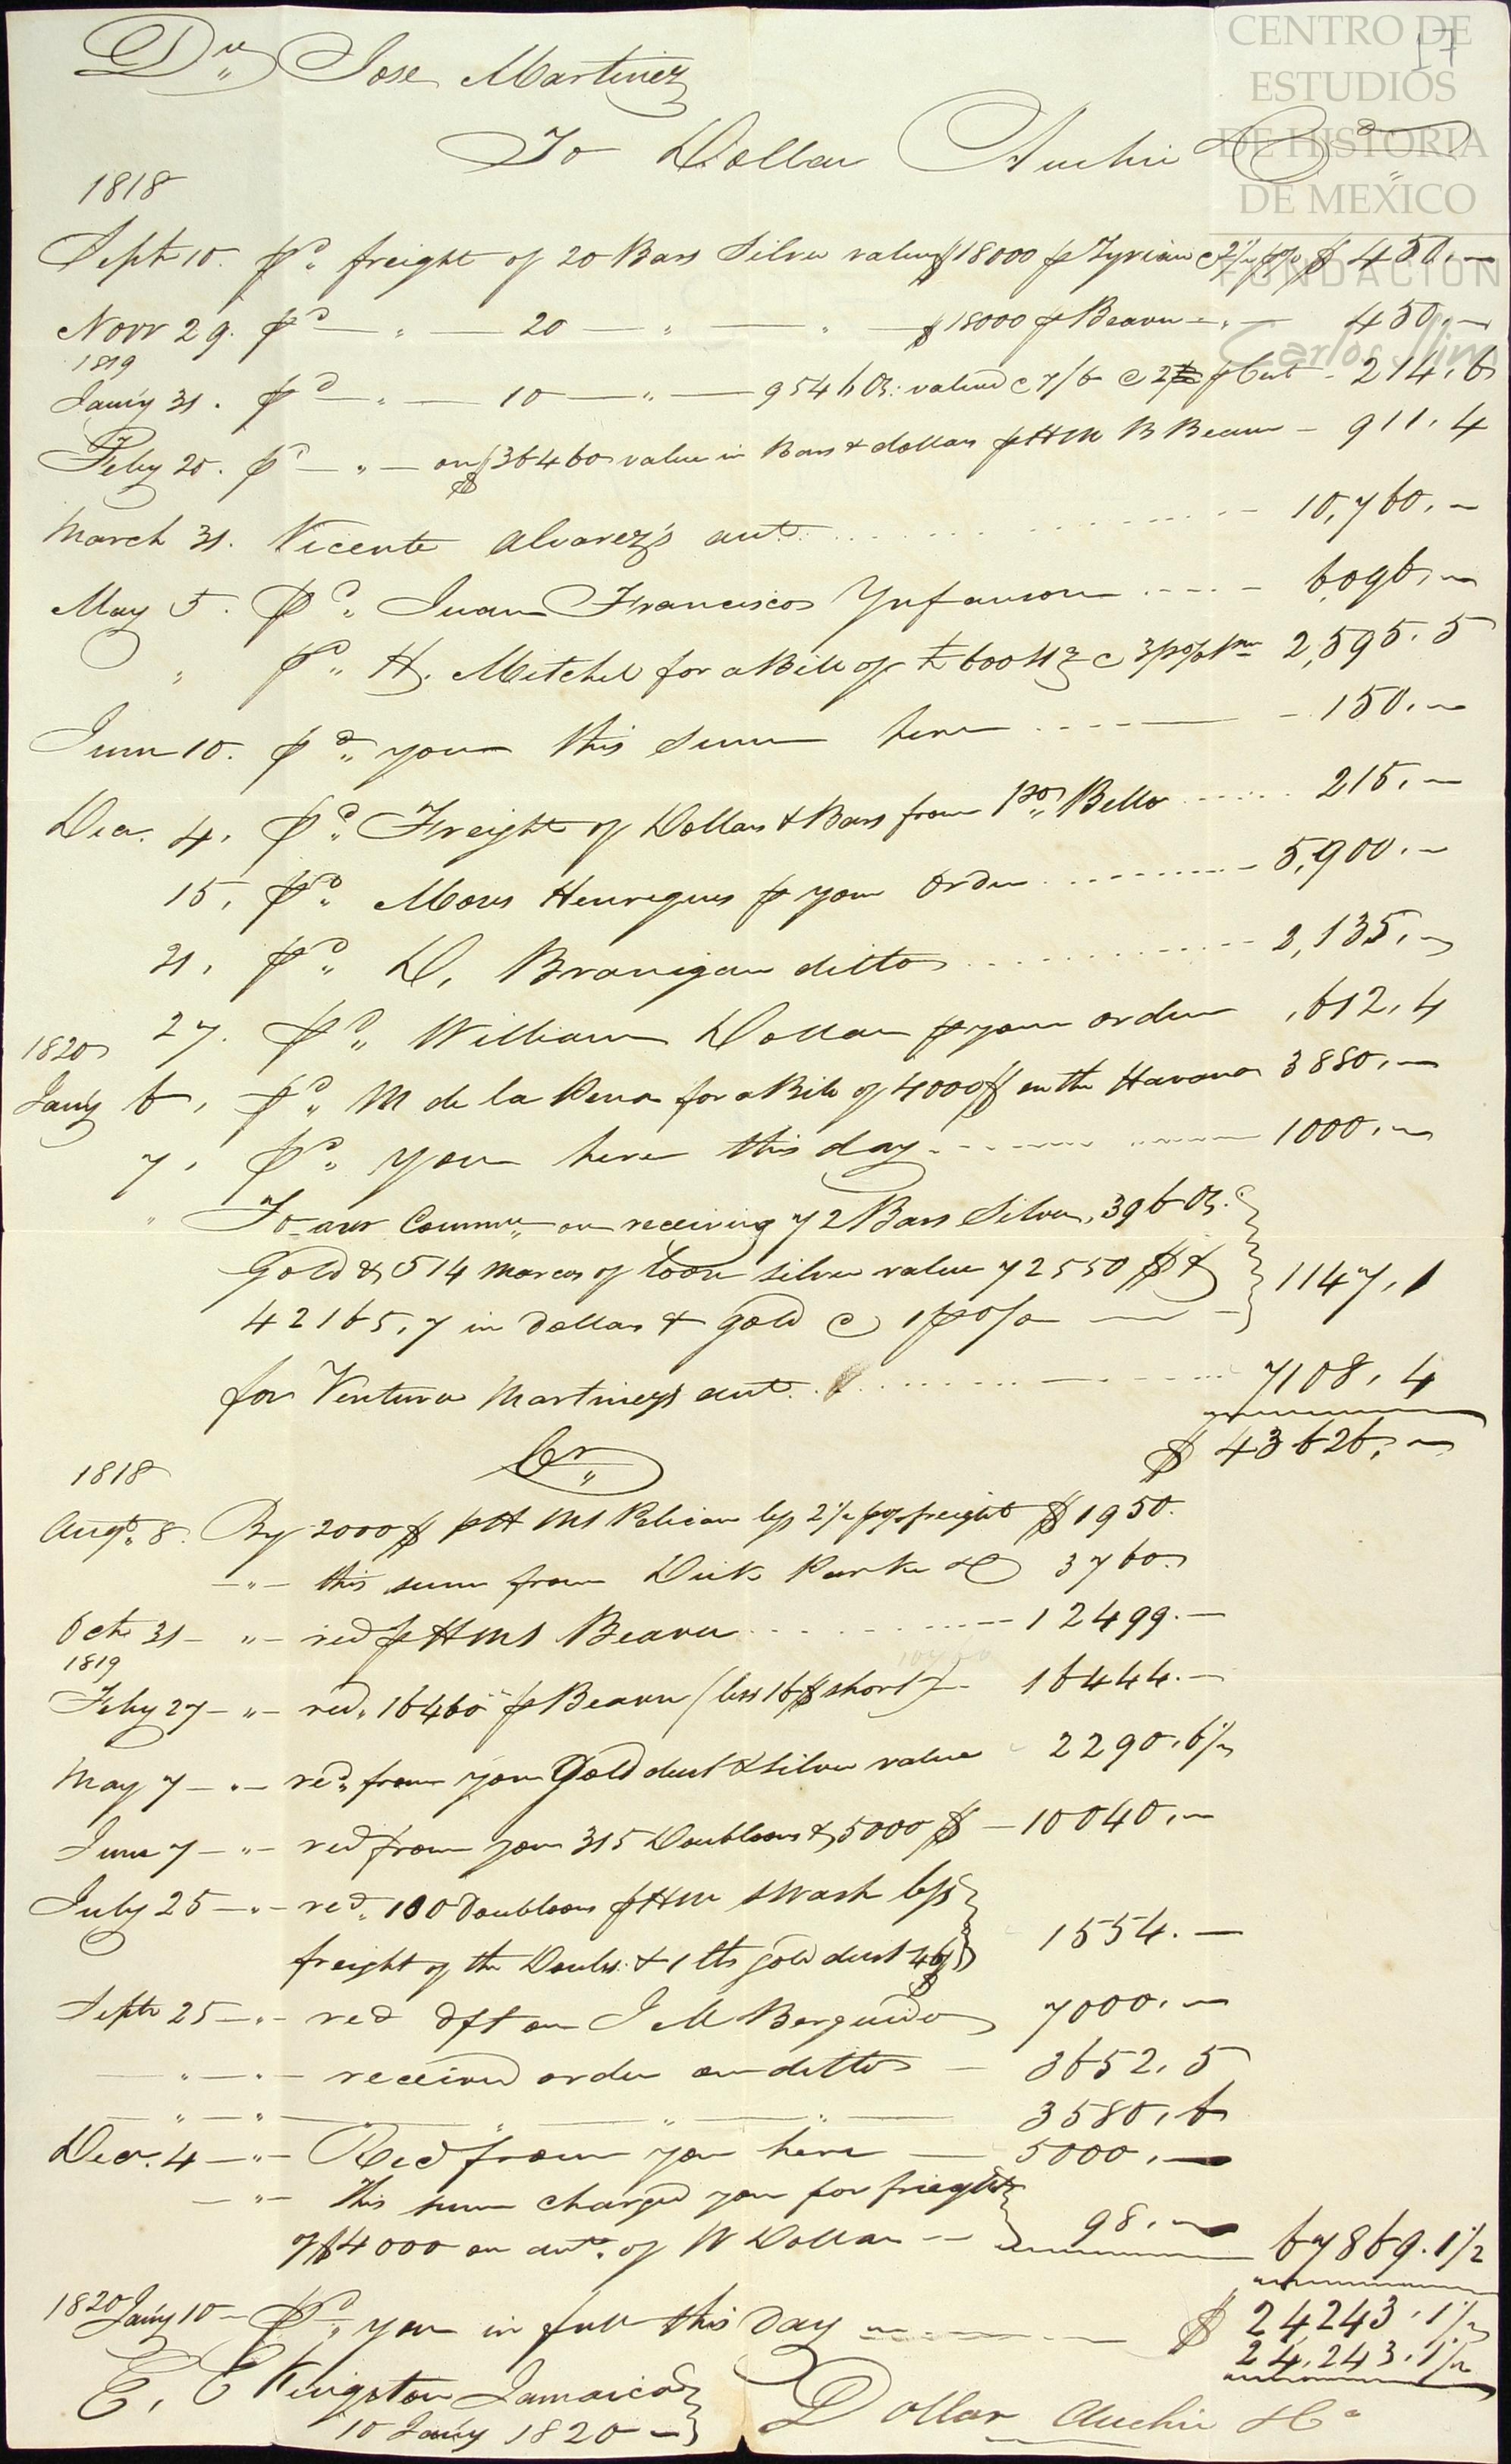 Dn Jose Martinez
17
CENTRO DE
ESTUDIOS
DE HISTORIA
DE MEXICO
FUNDACION
Carlos Slim
To Dollar Auchie & Co
1818
Sept 10. pd freight of 20 Bars Silver value $18000 p Tyrian @ 2½ p% $ 450.–
Novr 29. pd — " — 20 — " — " — $18000 p Beaver — " — 450.–
1819
Jany 31. pd — " — 10 — " — 9546 Oz: valued @ 7/6 @ 2½ p Cent - 214.6
Feby 20. pd — " — on $36460 value in Bars & dollars p HM B Beaver – 911.4
March 31. Vicente Alvarez's acct. 10,760.–
May 5. Pd Juan Francisco Ynfanson 6,096.–
" Pd H. Mitchel for a Bill of £600 Stg @ 3 p% pm 2,595.5
June 10. pd you this sum here 150.–
Decr. 4. Pd Freight of Dollars & Bars from Pto Bello 215.–
15. Pd Moses Henriques p your order 5,900.–
21. Pd D. Branigan ditto 2,135.–
27. Pd William Dollar p your order ,612.4
1820
Jany 6. Pd M de la Pena for a Bill of 4000$ on the Havana 3880.–
7. Pd you here this day 1000.–
" To our Commn on receiving 72 Bars Silver, 396 Oz.
Gold & 514 marcos of loose silver value 72550 $ &
42165.7 in dollars & gold @ 1 p% 1147.1
for Ventura Martinez's acct. 7108.4
$ 43626.–
Cr
1818
Augt. 8. By 2000$ p H M S Pelican less 2½ p% freight $1950.
— " — this sum from Dick Parke & Co 3760.
Oct 31 — " — recd p HMS Beaver 12499.–
1819
Feby 27 — " — recd. 16460 p Beaver (less 16$ short) – 16444.–
May 7 — " — recd. from you Gold dust & silver value 2290.6½
June 7 — " — recd from you 315 Doubloons & 5000 $ – 10040.–
July 25 — " — recd. 100 doubloons p HM S Wasp less
freight of the Doubs. & 1 lb gold dust 46$ 1554.–
Sept 25 — " — recd dft on J M Berguido 7000.–
" — " — received order on ditto – 3652.5
" — " — " — " — " — 3580.6
Decr. 4 — " — Recd from you here — 5000.–
— " — this sum charged you for freight
of $4000 on acct. of W Dollar — 98.– 67869.1½
$ 24,243.1½
1820 Jany 10 – Pd you in full this Day 24,243.1½
E. E Kingston Jamaica
10 Jany 1820 –
Dollar Auchie & Co